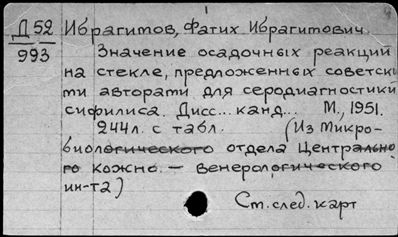 Д 52
993
Ибрагимов, Фатих Ибрагимович.
Значение осадочных реакций
на стекле, предложенных советски
ми авторами для серодиагностики
сифилиса. Дисс... канд... М., 1951.
244л. с табл. (Из Микро-
биологического отдела Централь­но
го Кожно. — венерологического
ин-та)
Ст. след. карт